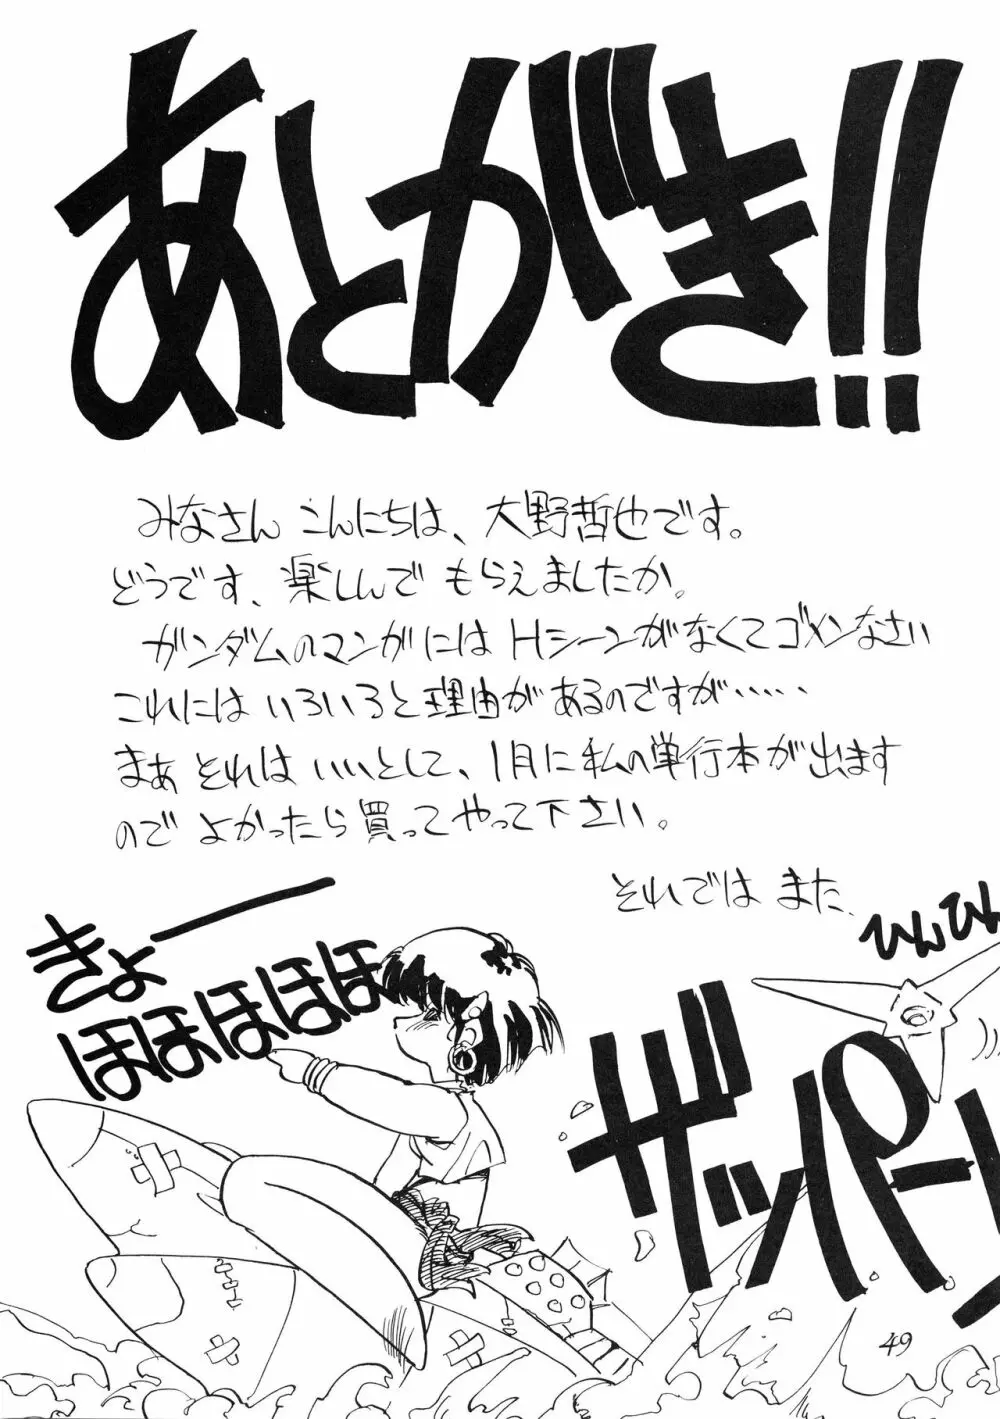 あとがき!!
みなさん こんにちは、大野哲也です。
どうです、楽しんで もらえましたか。
ガンダムのマンガには Hシーンがなくてゴメンなさい
これには いろいろと理由が あるのですが‥‥‥
まぁ それは いいとして、1月に私の単行本が出ます
ので よかったら買って やって下さい。
それでは また、
きょー
ほほほほほ
ひんひん
ザッパーン
49